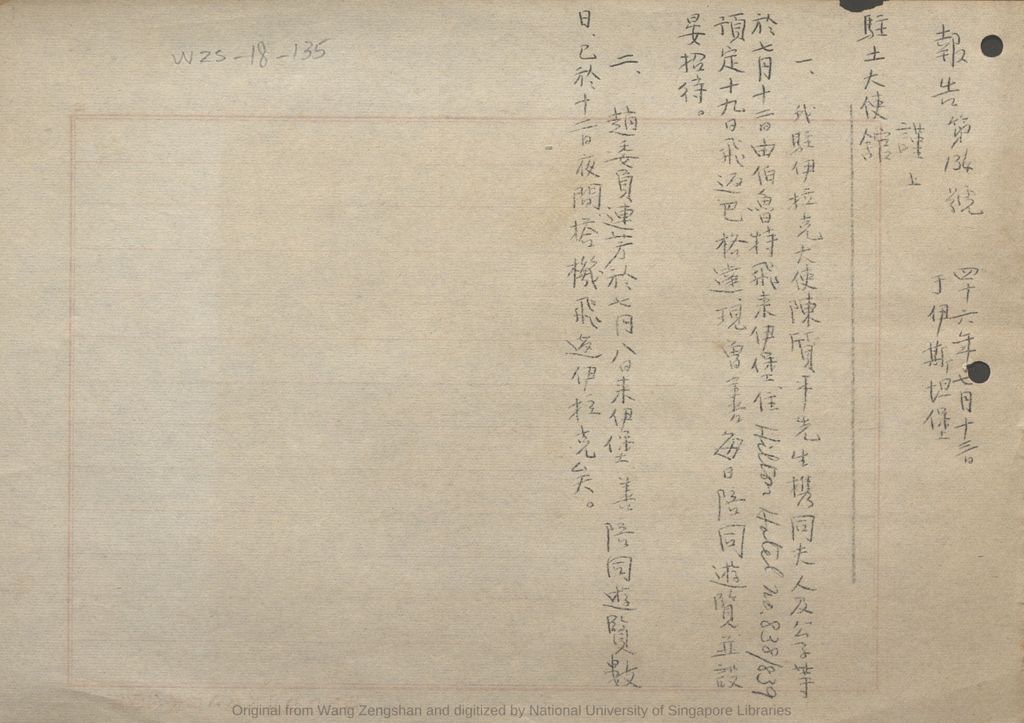 報告第134號
四十六年七月十三日
于伊斯坦堡
謹上
駐土大使館
一、我駐伊拉克大使陳質平先生攜同夫人及公子等
於七月十二日由伯魯特飛來伊堡住Hilton Hotel no.838/839
預定十九日飛返巴格達現曾善每日陪同遊覽並設
晏招待。
二、趙委員連芳於七月八日來伊堡善陪同遊覽數
日、已於十二日夜間搭機飛返伊拉克矣。
WZS-18-135
Original from Wang Zengshan and digitized by National University of Singapore Libraries